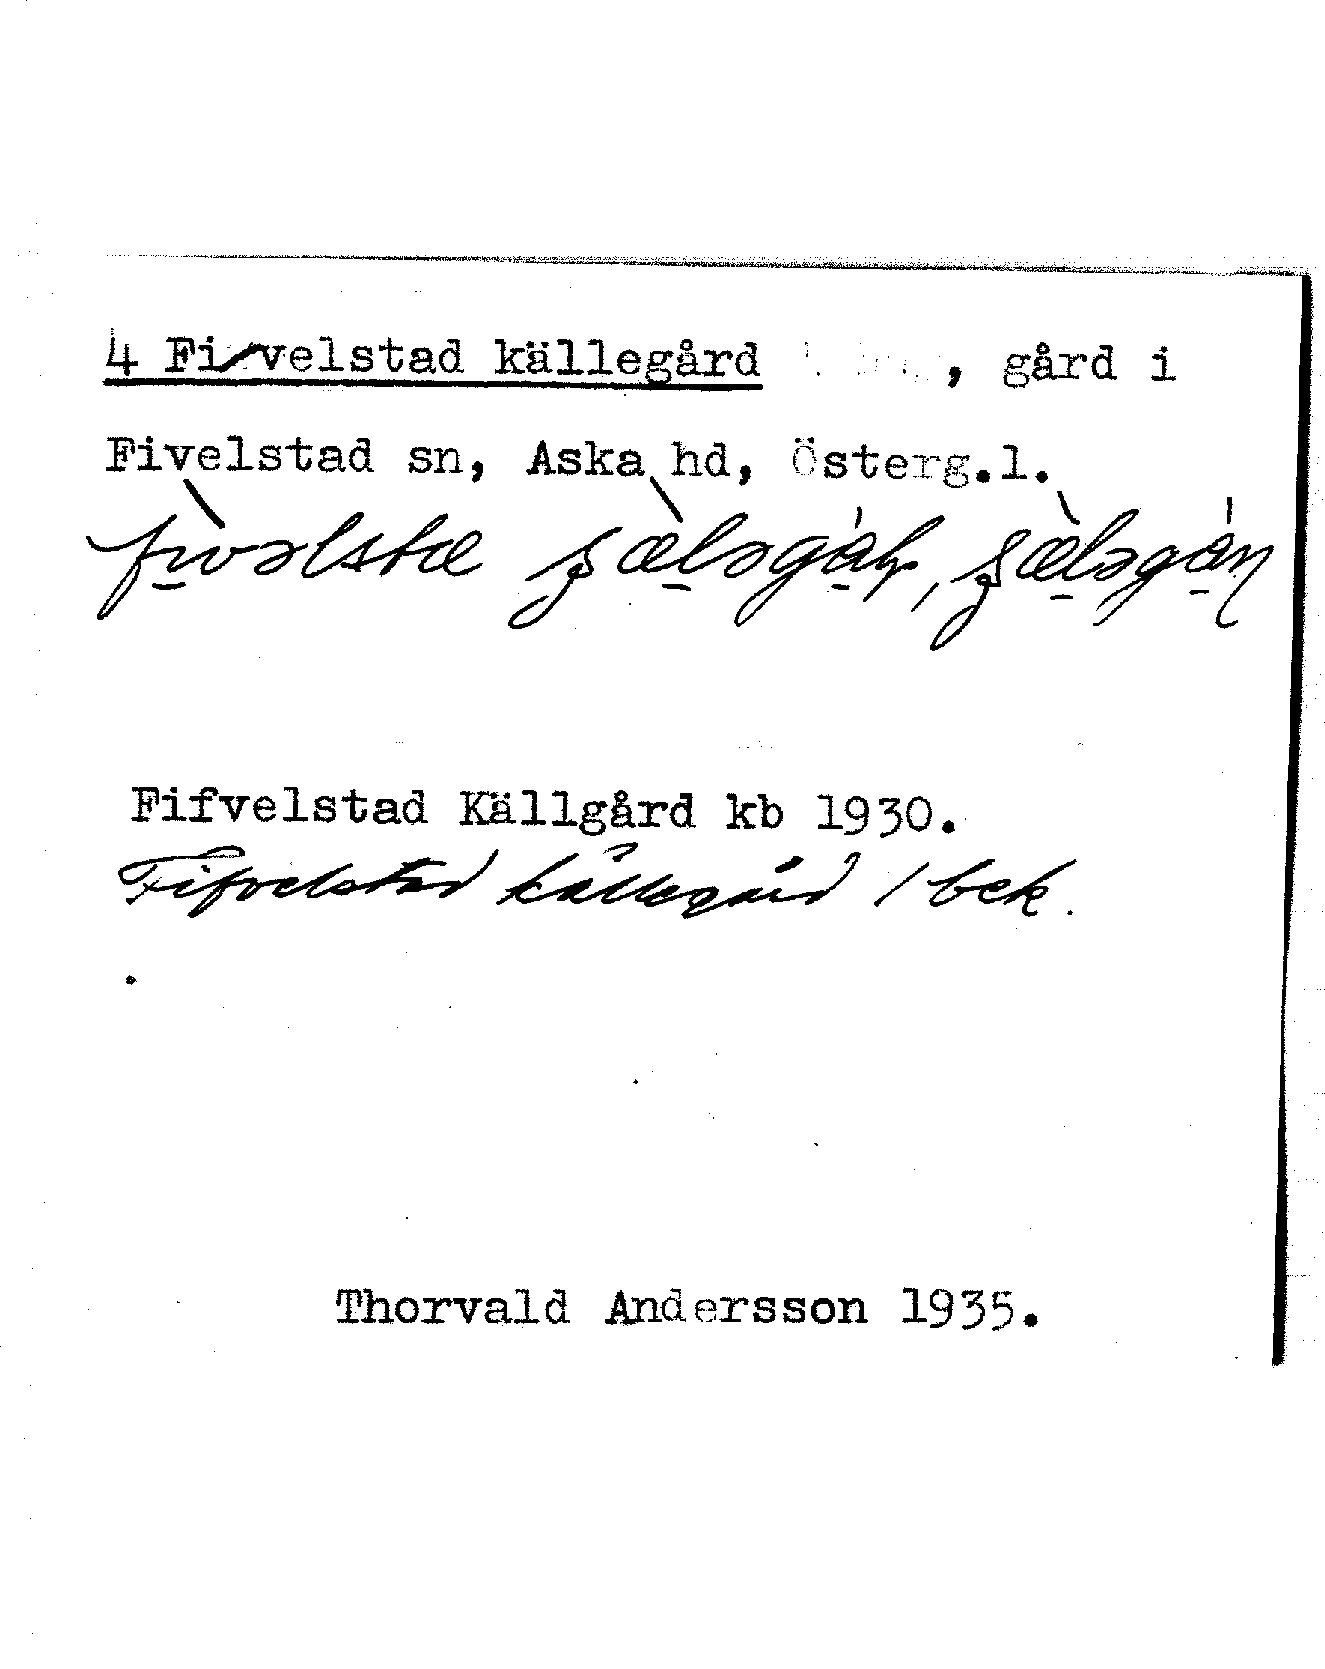 4 Fivelstad källegård , gård i
Fivelstad sn, Aska hd, Österg.l.
Fifvelstad Källgård kb 1930.
Fifvelstad källegård / bek.
Thorvald Andersson 1935.